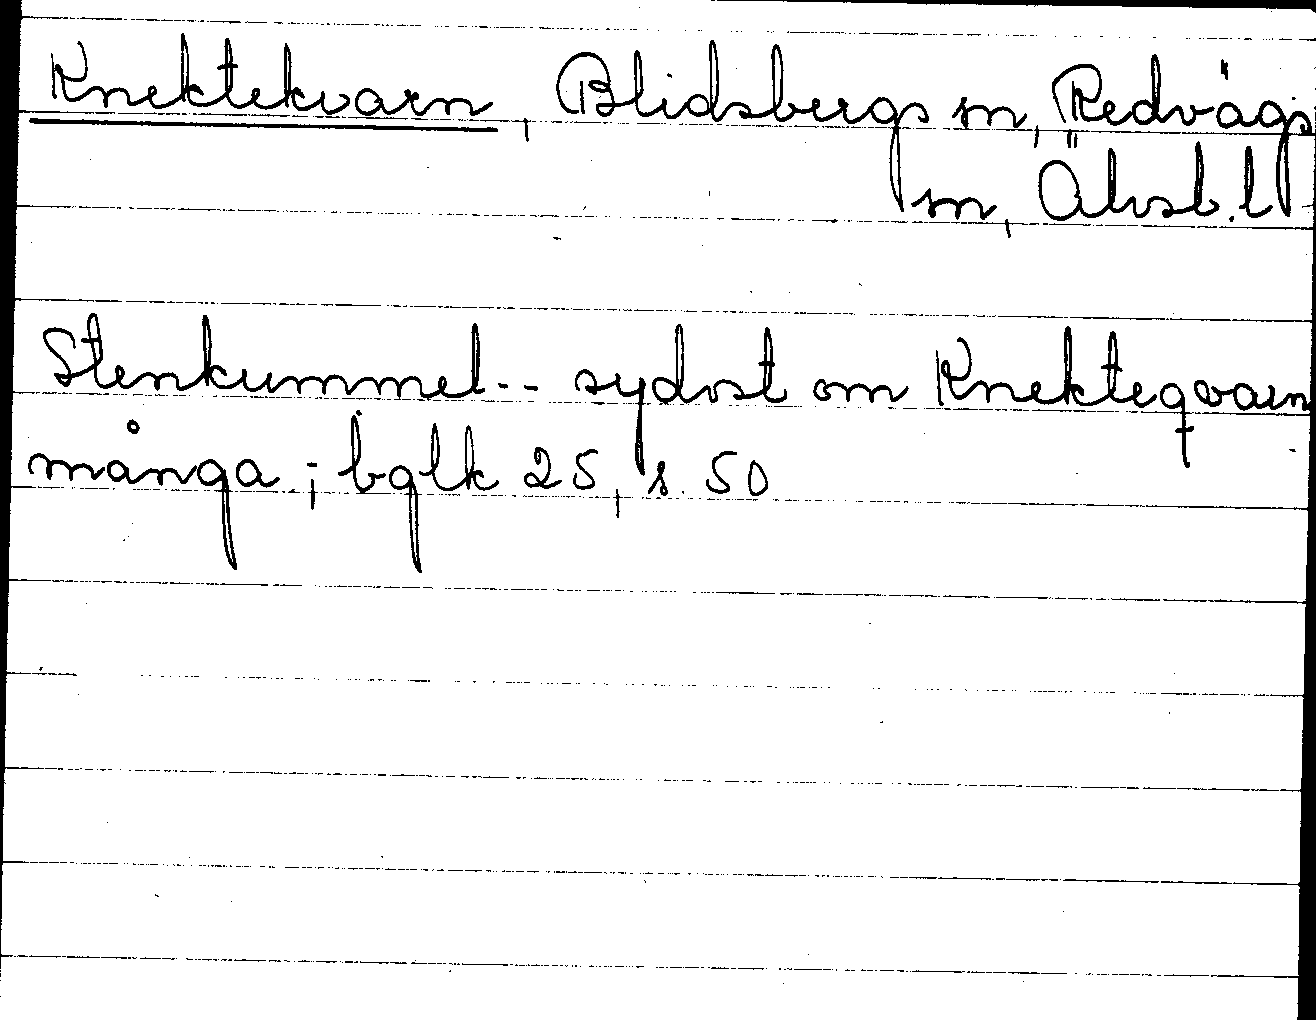 Knektekvarn, Blidsbergs sn, Redvägs
sn, Älvsb. l
Stenkummel-- sydost om Knekteqvarn
många; bglk 25, s. 50